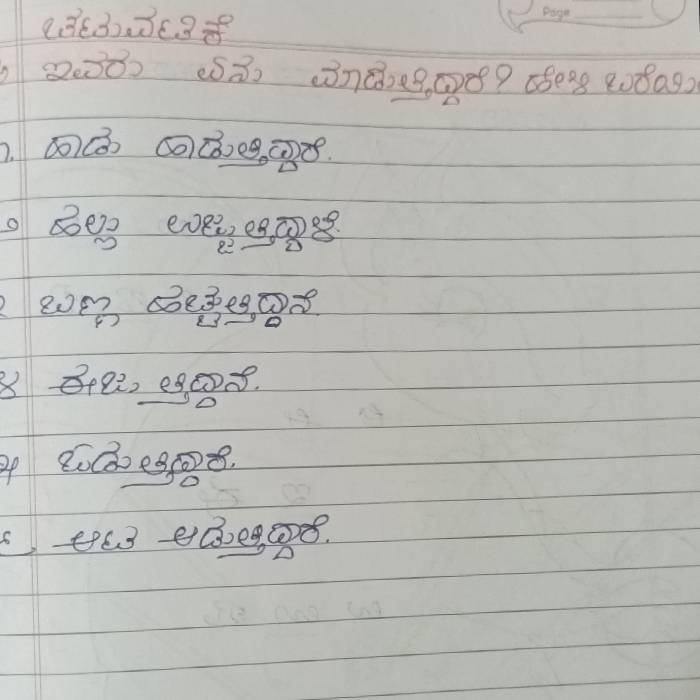 Page
ಚಟುವಟಿಕೆ
ಇವರು ಏನು ಮಾಡುತ್ತಿದ್ದಾರೆ? ಹೇಳಿ ಬರೆಯಿ
೧. ಹಾಡು ಹಾಡುತ್ತಿದ್ದಾರೆ.
೨ ಹಲ್ಲು ಉಜ್ಜುತ್ತಿದ್ದಾಳೆ.
೩ ಬಣ್ಣ ಹಚ್ಚುತ್ತಿದ್ದಾನೆ.
೪ ಈಜುತ್ತಿದ್ದಾನೆ.
೫ ಓಡುತ್ತಿದ್ದಾರೆ.
೬. ಆಟ ಆಡುತ್ತಿದ್ದಾರೆ.